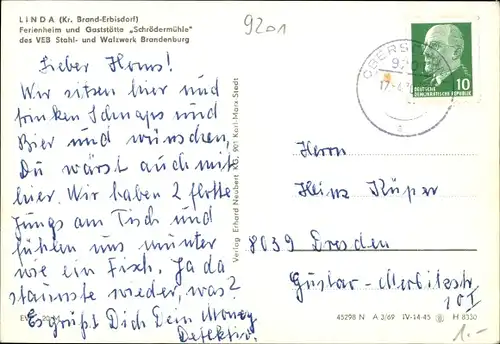 LINDA (Kr. Brand-Erbisdorf)
Ferienheim und Gaststätte „Schrödermühle"
des VEB Stahl- und Walzwerk Brandenburg
9201
Lieber Heins!
Wir sitzen hier und
trinken Schnaps und
Bier und wünschen,
Du wärst auch mit
hier. Wir haben 2 flotte
Jungs am Tisch und
fühlen uns munter
wie ein Fisch. Ja da
staunste wieder, was?
Es grüßt Dich Dein Money
Detektiv.
Verlag Erhard Neubert KG, 901 Karl-Marx-Stadt
10
DEUTSCHE
DEMOKRATISCHE REPUBLIK
Herrn
Heinz Küper
8039 Dresden
Gustav-Merbitzstr
10 I
45298 N A 3/69 IV-14-45 H 8330
1.-